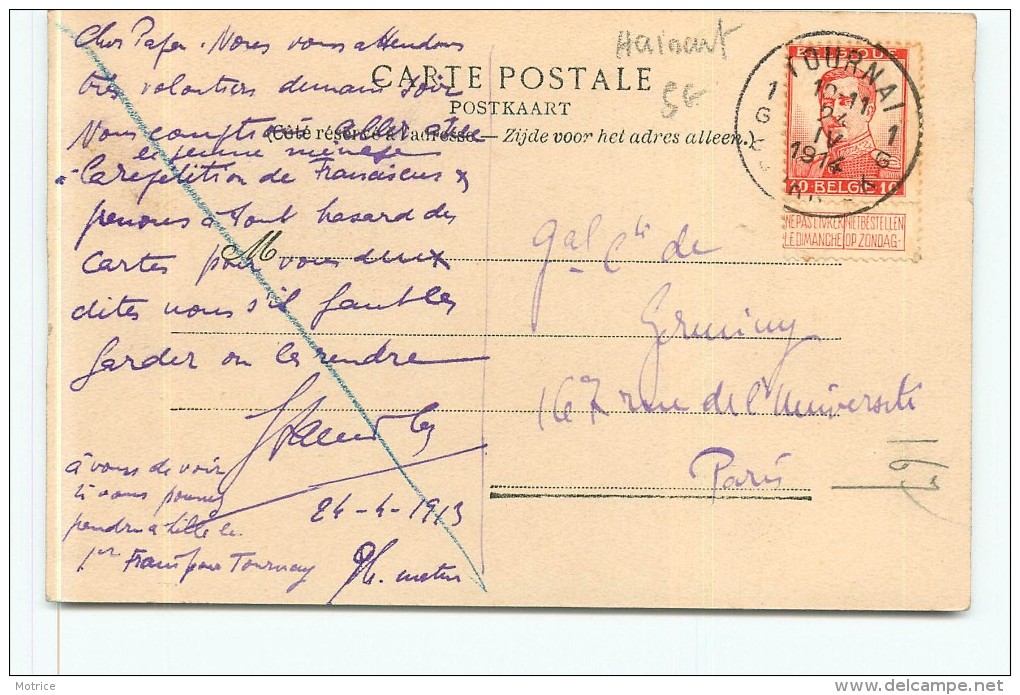 Cher Papa. Nous vous attendons
très volontiers demain soir
Nous comptions aller avec
le jeune ménage
à la répétition de Franciscus &
prenons à tout hasard des
cartes pour vous deux
dites nous s'il faut les
garder ou les rendre
à vous de voir
si vous pouvez
prendre à Lille le
1er Train pour Tournay
24-4-1913
9h. matin
Hainaut
CARTE POSTALE
POSTKAART
(Côté réservé à l'adresse. — Zijde voor het adres alleen.)
M
Gal Cte de
Germiny
167 rue de l'Université
Paris
BELGIQUE
10 BELGIE 10
NE PAS LIVRER NIET BESTELLEN
LE DIMANCHE OP ZONDAG
TOURNAI
1 1
10-11
24
IV
1914
Motrice
©delcampe.net